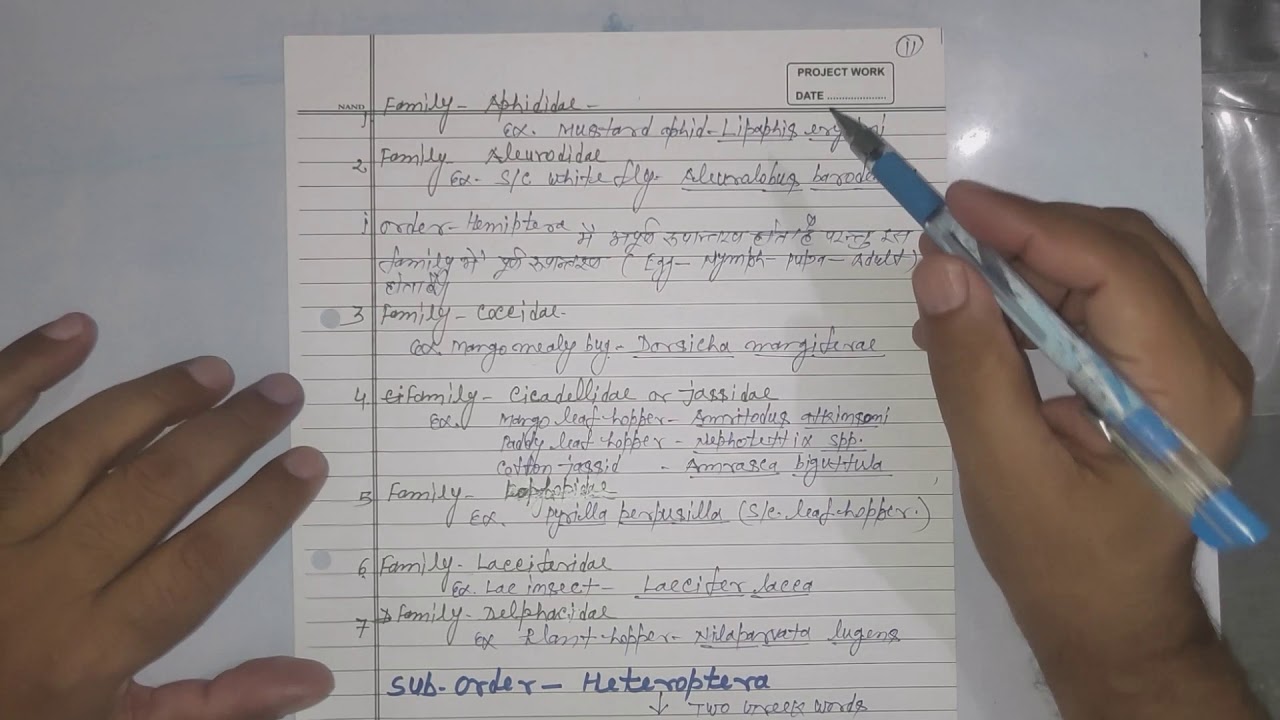 11
PROJECT WORK
NAND
DATE
1 Family - Aphididae -
Ex. Mustard aphid - Lipaphis
2 Family - Aleurodidae
Ex - S/C white fly - Aleuralobus
i order - Hemiptera में अपूर्ण रूपान्तरण होता है परन्तु इस
family में पूर्ण रूपान्तरण ( Egg - Nymph - pupa - adult )
होता है।
3 Family - Coccidae -
Ex. mango mealy bug - Dorsicha mangiferae
4. Family - Cicadellidae or Jassidae
Ex. Mango leaf hopper - Amritodus atkinsoni
Paddy leaf hopper - Nephotettix spp.
Cotton jassid - Amrasca biguttula
5 Family - Lophopidae
Ex. pyrilla perpusilla (S/c. leaf hopper.)
6 Family - Lacciferidae
Ex. Lac insect - Laccifer lacca
7 Family - Delphacidae
Ex Plant hopper - Nilaparvata lugens
Sub-order - Heteroptera
↓ Two Greek words